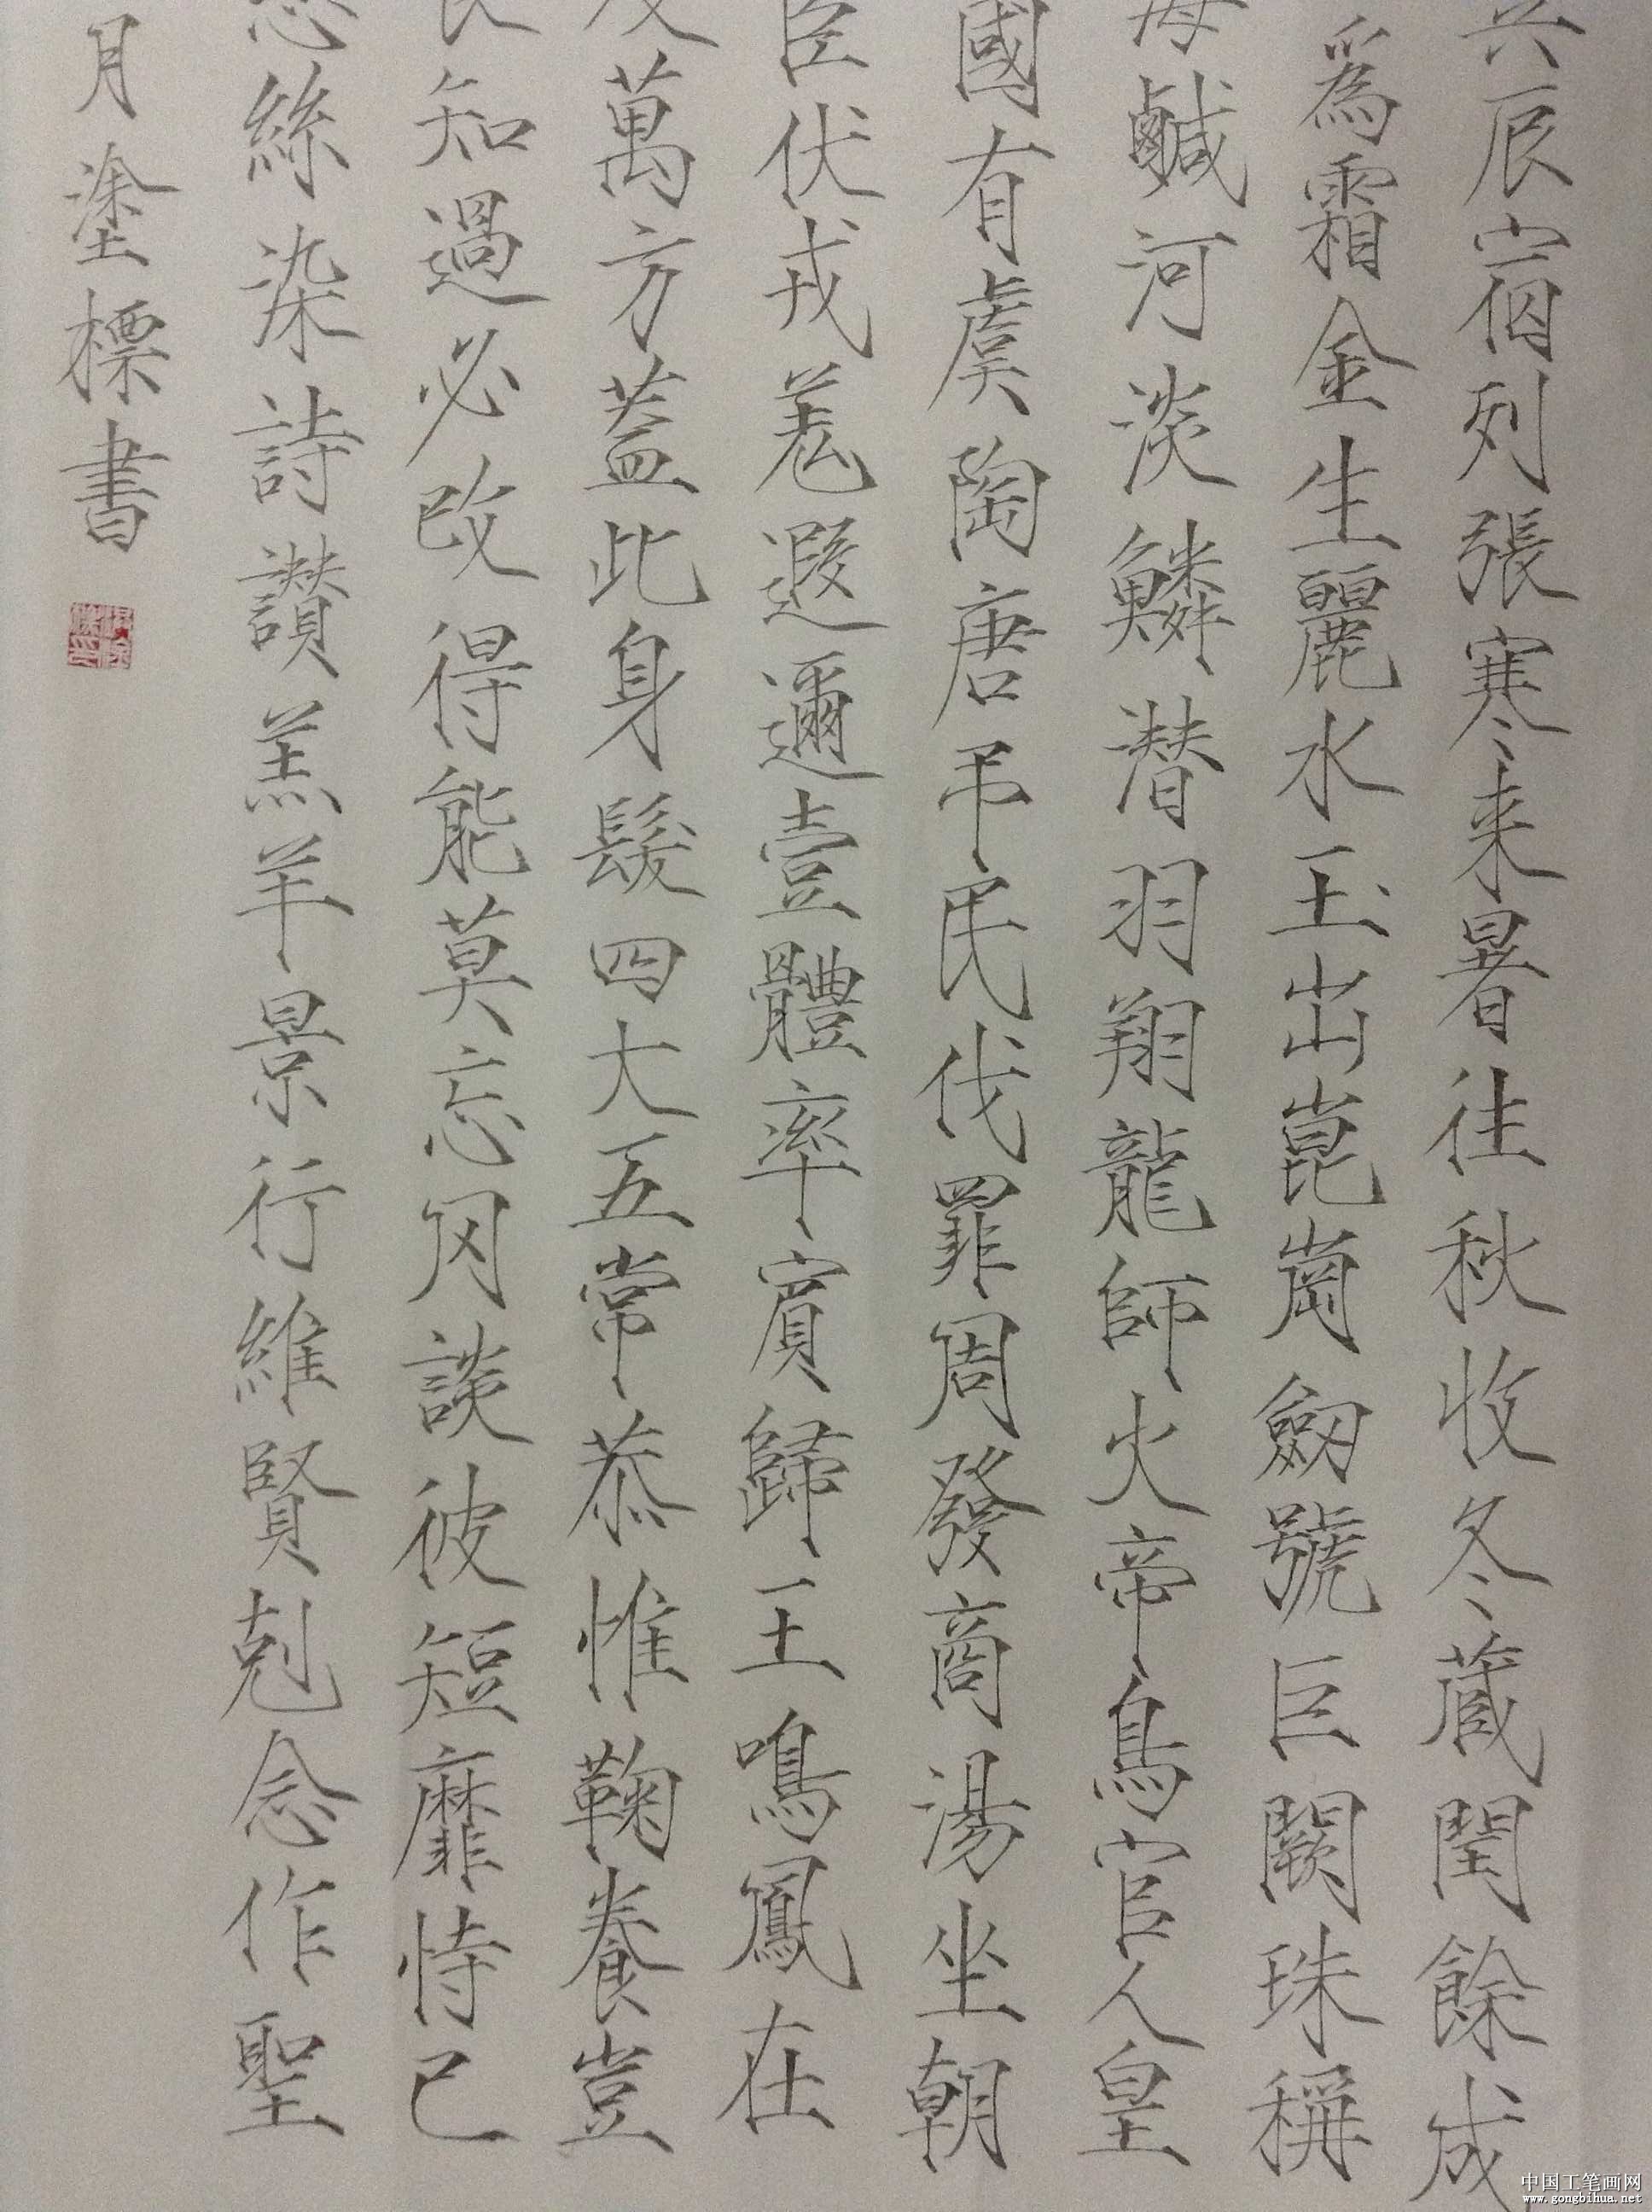 辰宿列張寒来暑往秋收冬蔵閏餘成
為霜金生麗水玉出崑崗劒號巨闕珠稱
海鹹河淡鱗潜羽翔龍師火帝鳥官人皇
國有虞陶唐弔民伐罪周發商湯坐朝
臣伏戎羌遐邇壹體率賓歸王鳴鳳在
及萬方蓋此身髮四大五常恭惟鞠養豈
良知過必改得能莫忘罔談彼短靡恃己
悲絲染詩讃羔羊景行維賢剋念作聖
月塗標書
中国工笔画网
www.gongbihua.net